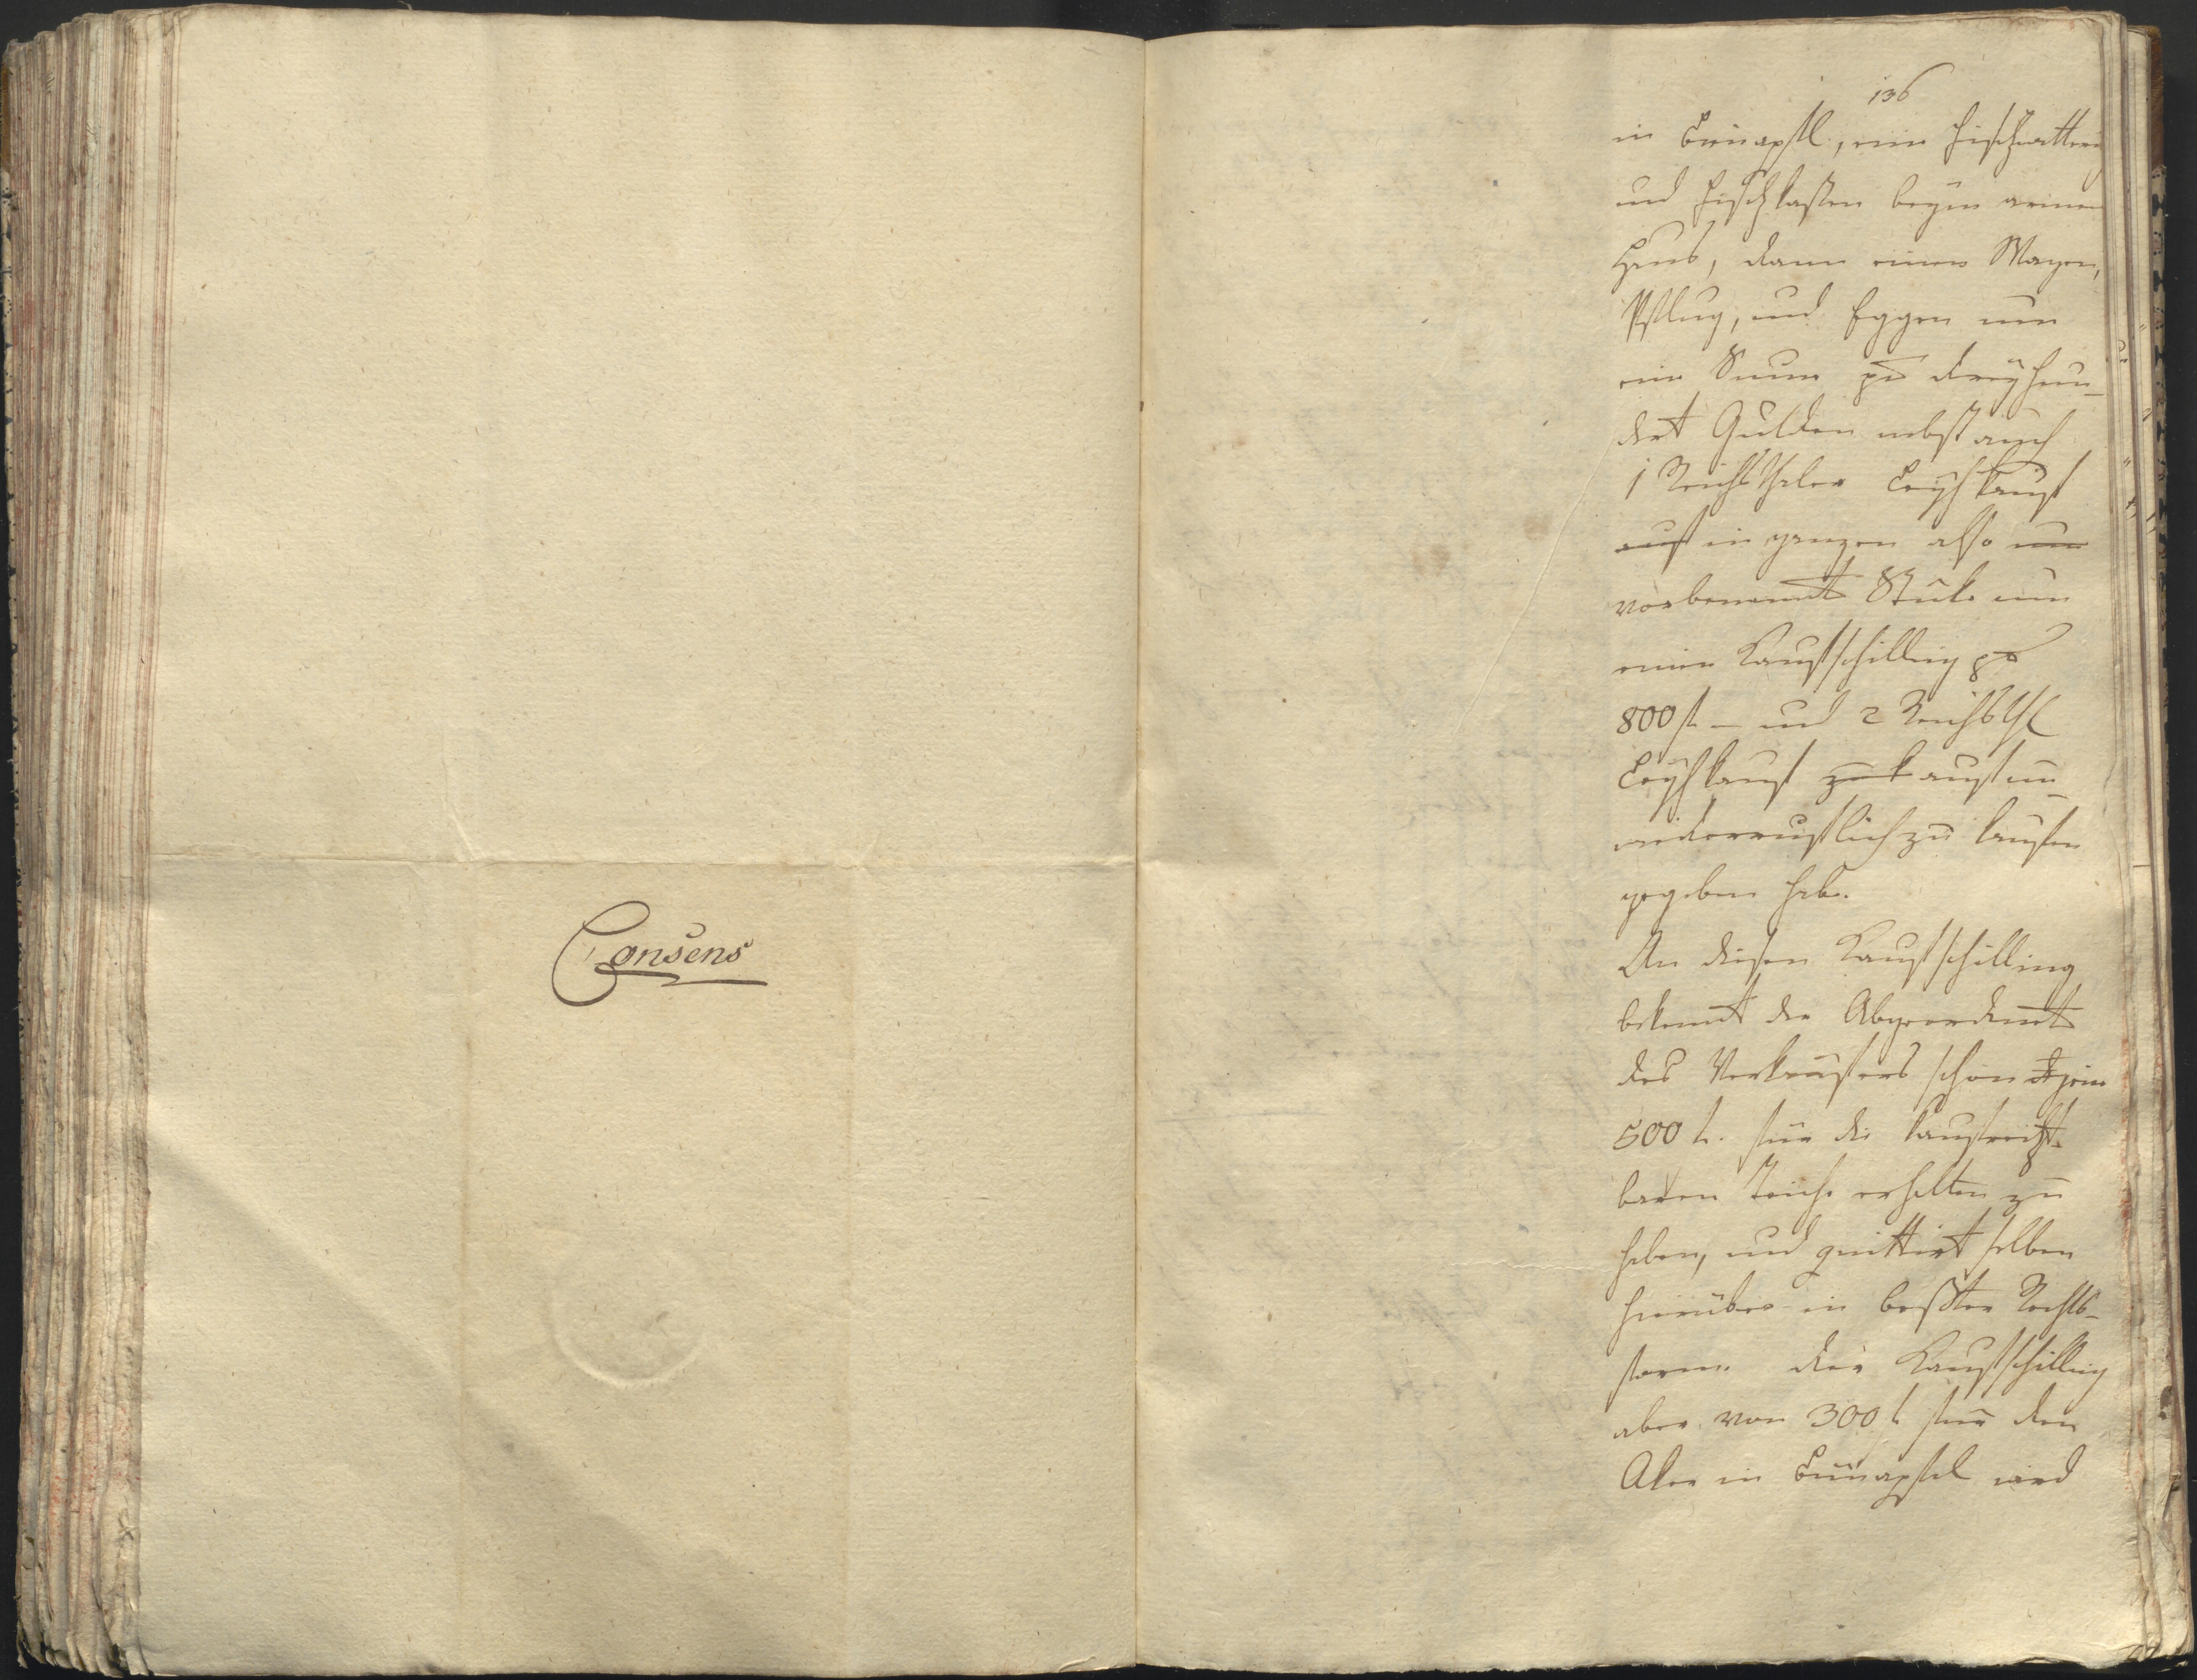 Consens
136
in , ein Fischwatter
und Fischkasten beym armen
Haus, dann einen Wagen,
Pflug, und Eggen um
eine Summ pr dreyhun-
dert Gulden nebst auch
1 Reichsthaler Leyhkauf
auf in ganzen also um
vorbenannte Stuke um
einen Kaufschilling pr
800 f – und 2 Reichsthl
Leyhkauf zu kauf un-
wiederruflich zu kaufen
gegeben habe.
An diesen Kaufschilling
bekennt der Abgeordnete
des Verkaufers schon
500 f. für die kaufrecht-
baren Teiche erhalten zu
haben, und quittirt selben
hierüber in bester Rechts-
form. Der Kaufschilling
aber von 300 f für den
Aker in wird